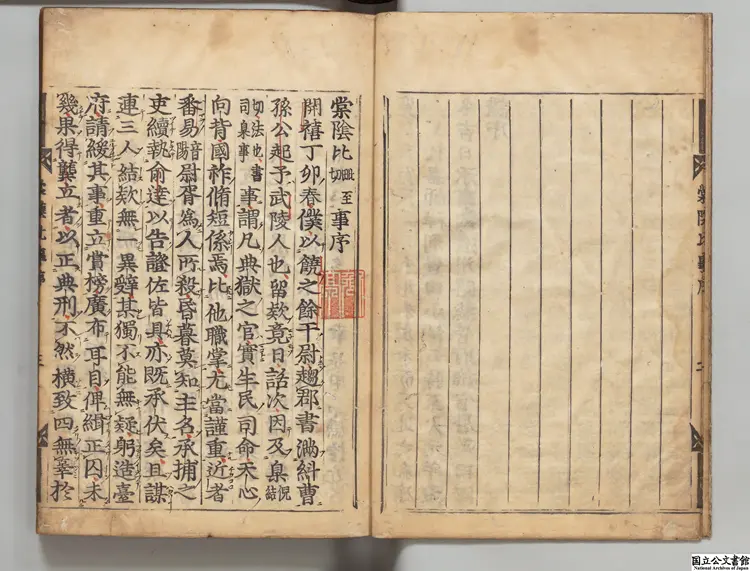 棠陰比毗至切事序
開禧丁卯春僕以饒之餘干尉趨郡書滿糾曹
孫公起予武陵人也留欵竟日話次因及臬倪結
切法也書司臬事事謂凡典獄之官實生民司命天心
向背國祚脩短係焉比他職掌尤當謹重近者
番易音陽尉胥為人所殺昏暮莫知主名承捕之
吏續執俞達以告證佐皆具亦既承伏矣且謀
連三人結欵無一異辭某獨不能無疑躬造臺
府請緩其事重立賞榜廣布耳目俾緝正囚未
幾果得龔立者以正典刑不然橫致四無辜於
国立公文書館
National Archives of Japan